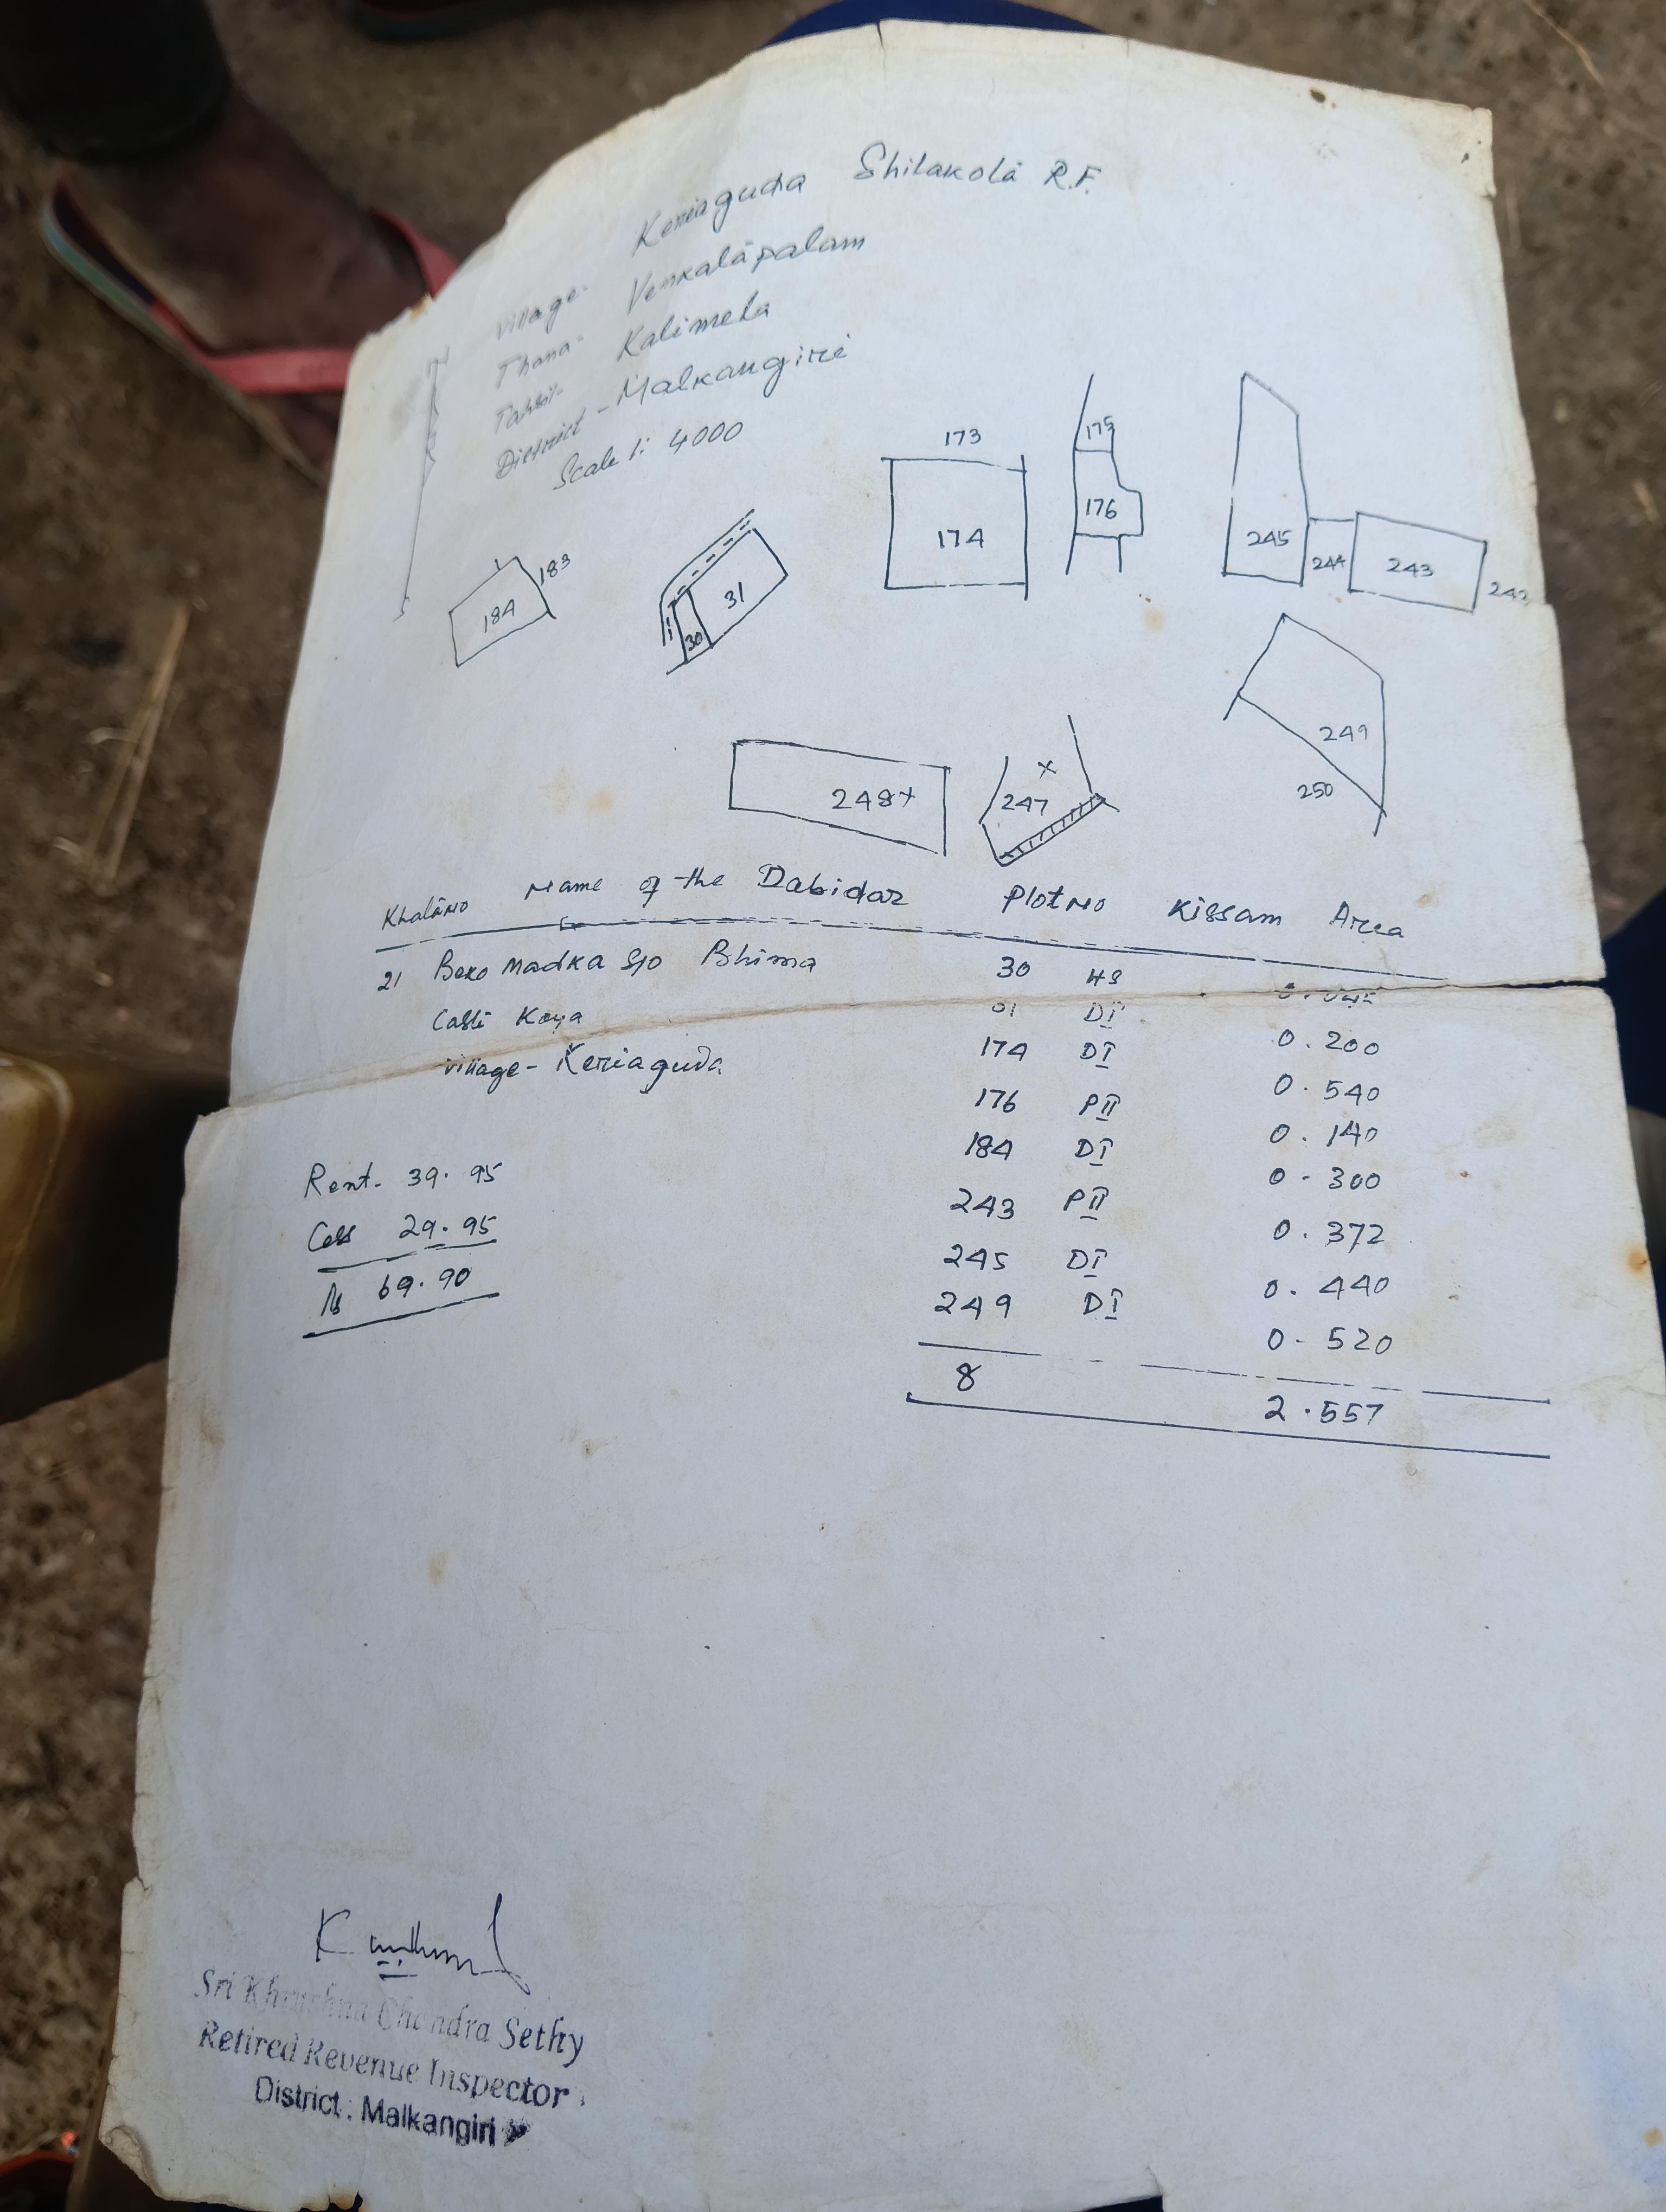 Village- Keriaguda Shilakota R.F.
Thana- Venkatapalam
Tahsil- Kalimela
District - Malkangiri
Scale 1: 4000
173
175
174
176
245
244
243
242
183
184
31
30
249
250
248+
247
x
Khata No Name of the Dabidar Plot No Kissam Area
21 Beko Madka S/o Bhima 30 HS 0.045
Caste Koya 31 DI 0.200
Village- Keriaguda 174 DI 0.540
176 PII 0.140
184 DI 0.300
243 PII 0.372
245 DI 0.440
249 DI 0.520
8 2.557
Rent- 39.95
Cess 29.95
Rs 69.90
Sri Chandra Sethy
Retired Revenue Inspector
District : Malkangiri